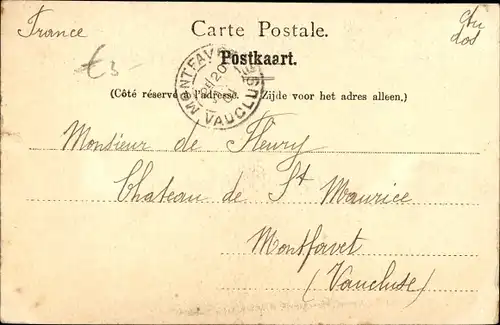 France
Carte Postale.
Postkaart.
€3-
MONTFAVET
VAUCLUSE
20
(Côté réservé à l'adresse. Zijde voor het adres alleen.)
Monsieur de Fleury
Chateau de St Maurice
Montfavet
(Vaucluse)